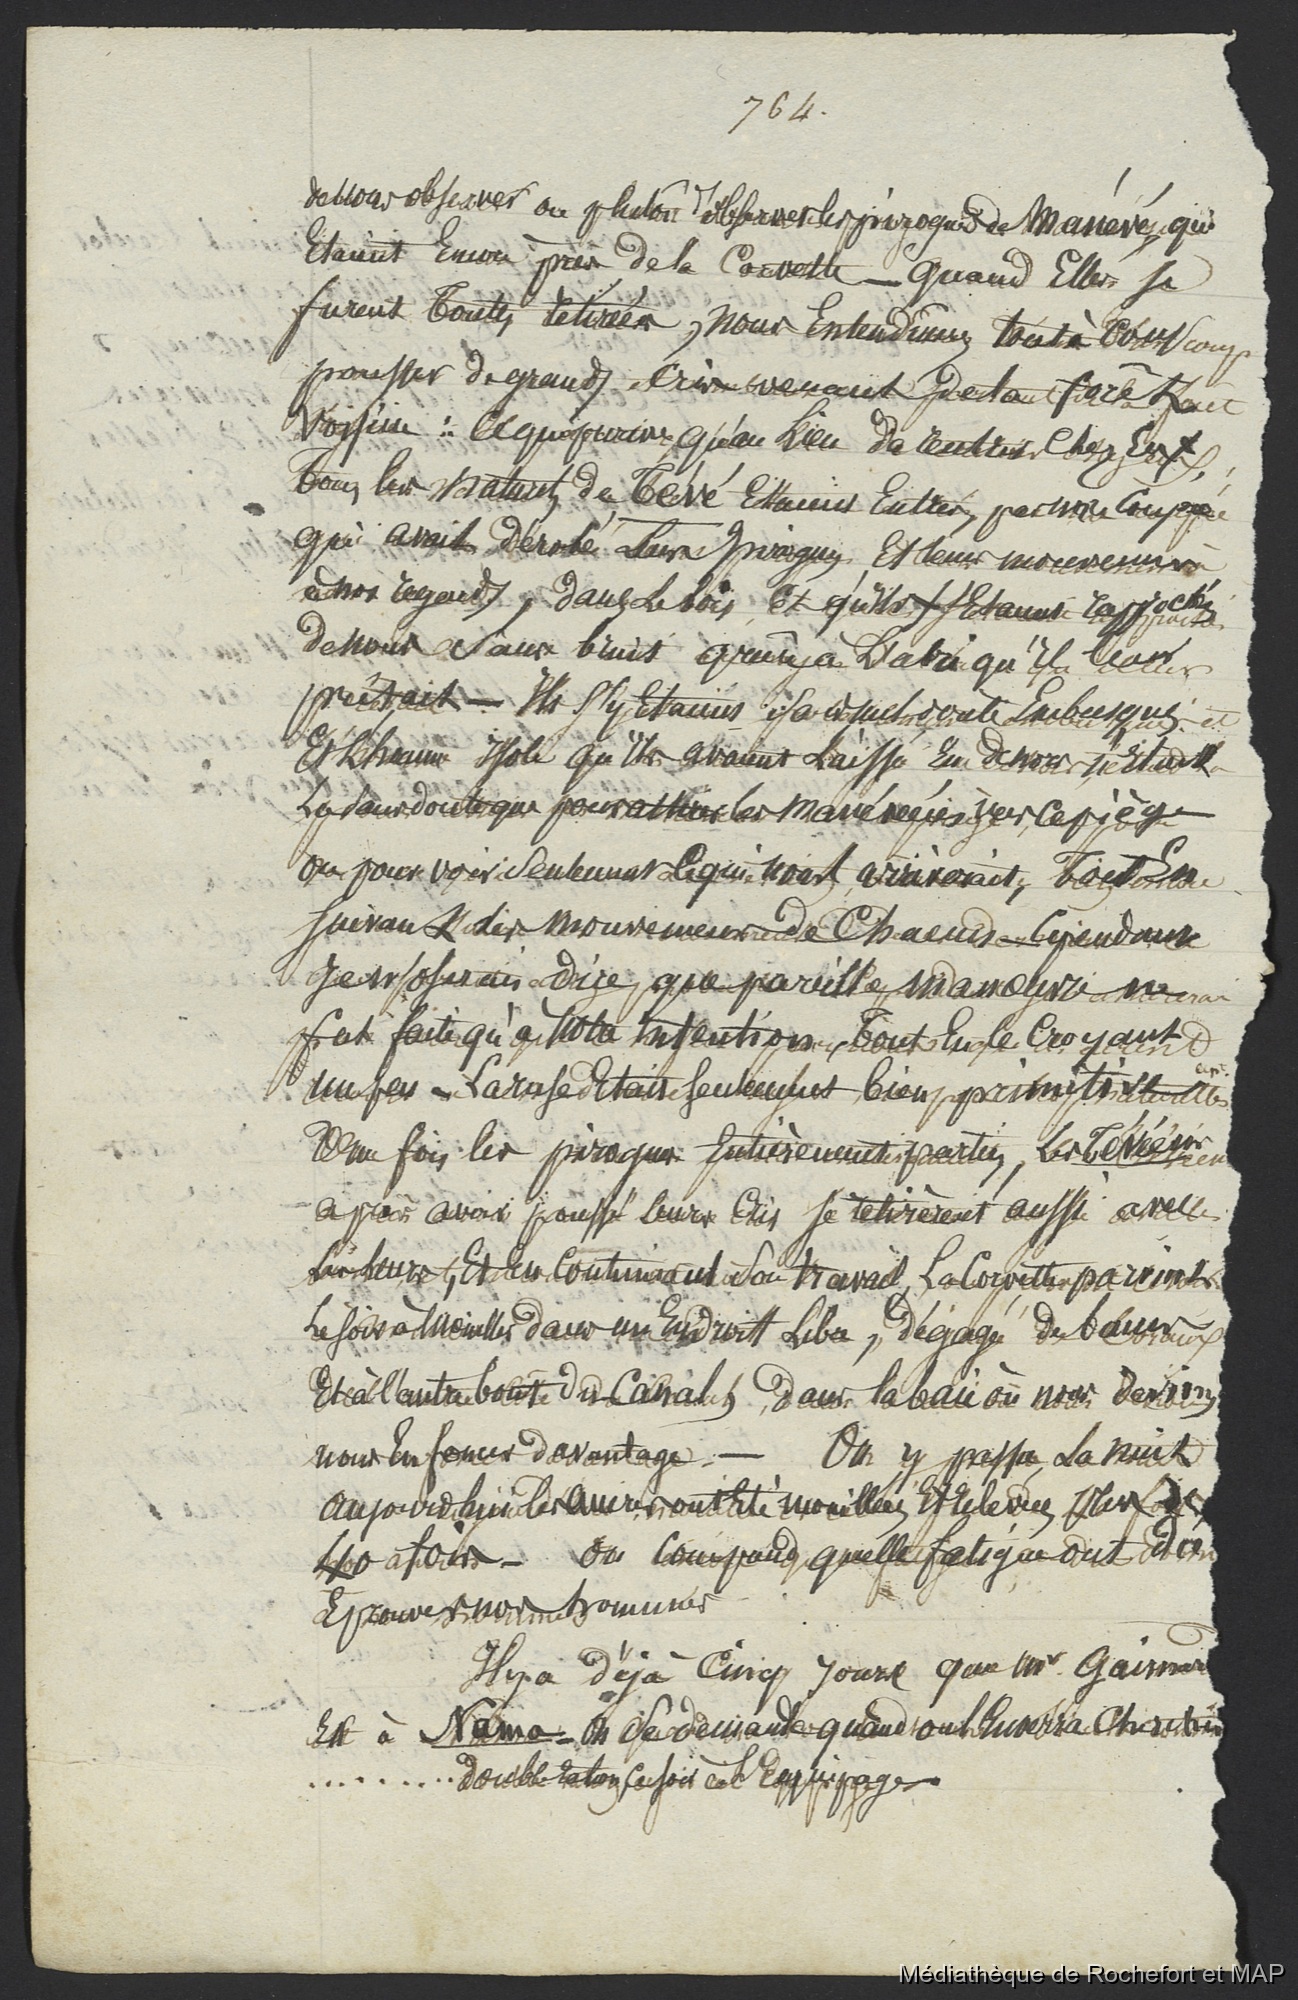 764.
de nous observer ou plutôt d'observer les pirogues de Manévé, qui
Etaient Encore près de la Corvette — quand Elles se
furent toutes retirées, nous Entendimes tout à coup
pousser de grands cris venant de la forêt
voisine : qu'au Lieu de rentrer chez Eux,
tous les naturels de Tévé Etaient Entrés, par une coupée
qui avait dérobé Leurs pirogues Et leurs mouvemens
à nos regards, dans Le bois, Et qu'ils s'Etaient rapprochés
de nous sans bruit grâce à L'abri qu'il leur
prêtait — Ils s'y Etaient sans doute Embusqués
Et L'homme isolé qu'ils avaient Laissé En dehors n'Etait
Là sans doute que pour attirer les Manévéens vers ce piège
ou pour voir seulement ce qui nous arriverait, tout En
suivant les mouvemens de chacun. Cependant
je n'oserais dire que pareille manoeuvre ne
fut faite qu'à cette Intention, tout En le croyant
un peu — La ruse Etait seulement bien primitive
Une fois les pirogues Entièrement parties, Les Tévéens
après avoir poussé leurs cris se retirèrent aussi
, Et En continuant son travail, La Corvette parvint
Le soir à mouiller dans un Endroit Libre, dégagé de bancs
Et à l'autre bout du Canal, dans la baie où nous devions
nous Enfoncer davantage — On y passa La nuit
aujourd'hui les ancres ont Eté mouillées Et Elevées
40 fois — On comprend quelle fatigue ont dû
Eprouver nos hommes
Il y a déjà Cinq jours que Mr Gaimard
Est à Nama — On se demande quand on l'Enverra chercher
.......... double ration ce soir à l'Equipage —
Médiathèque de Rochefort et MAP